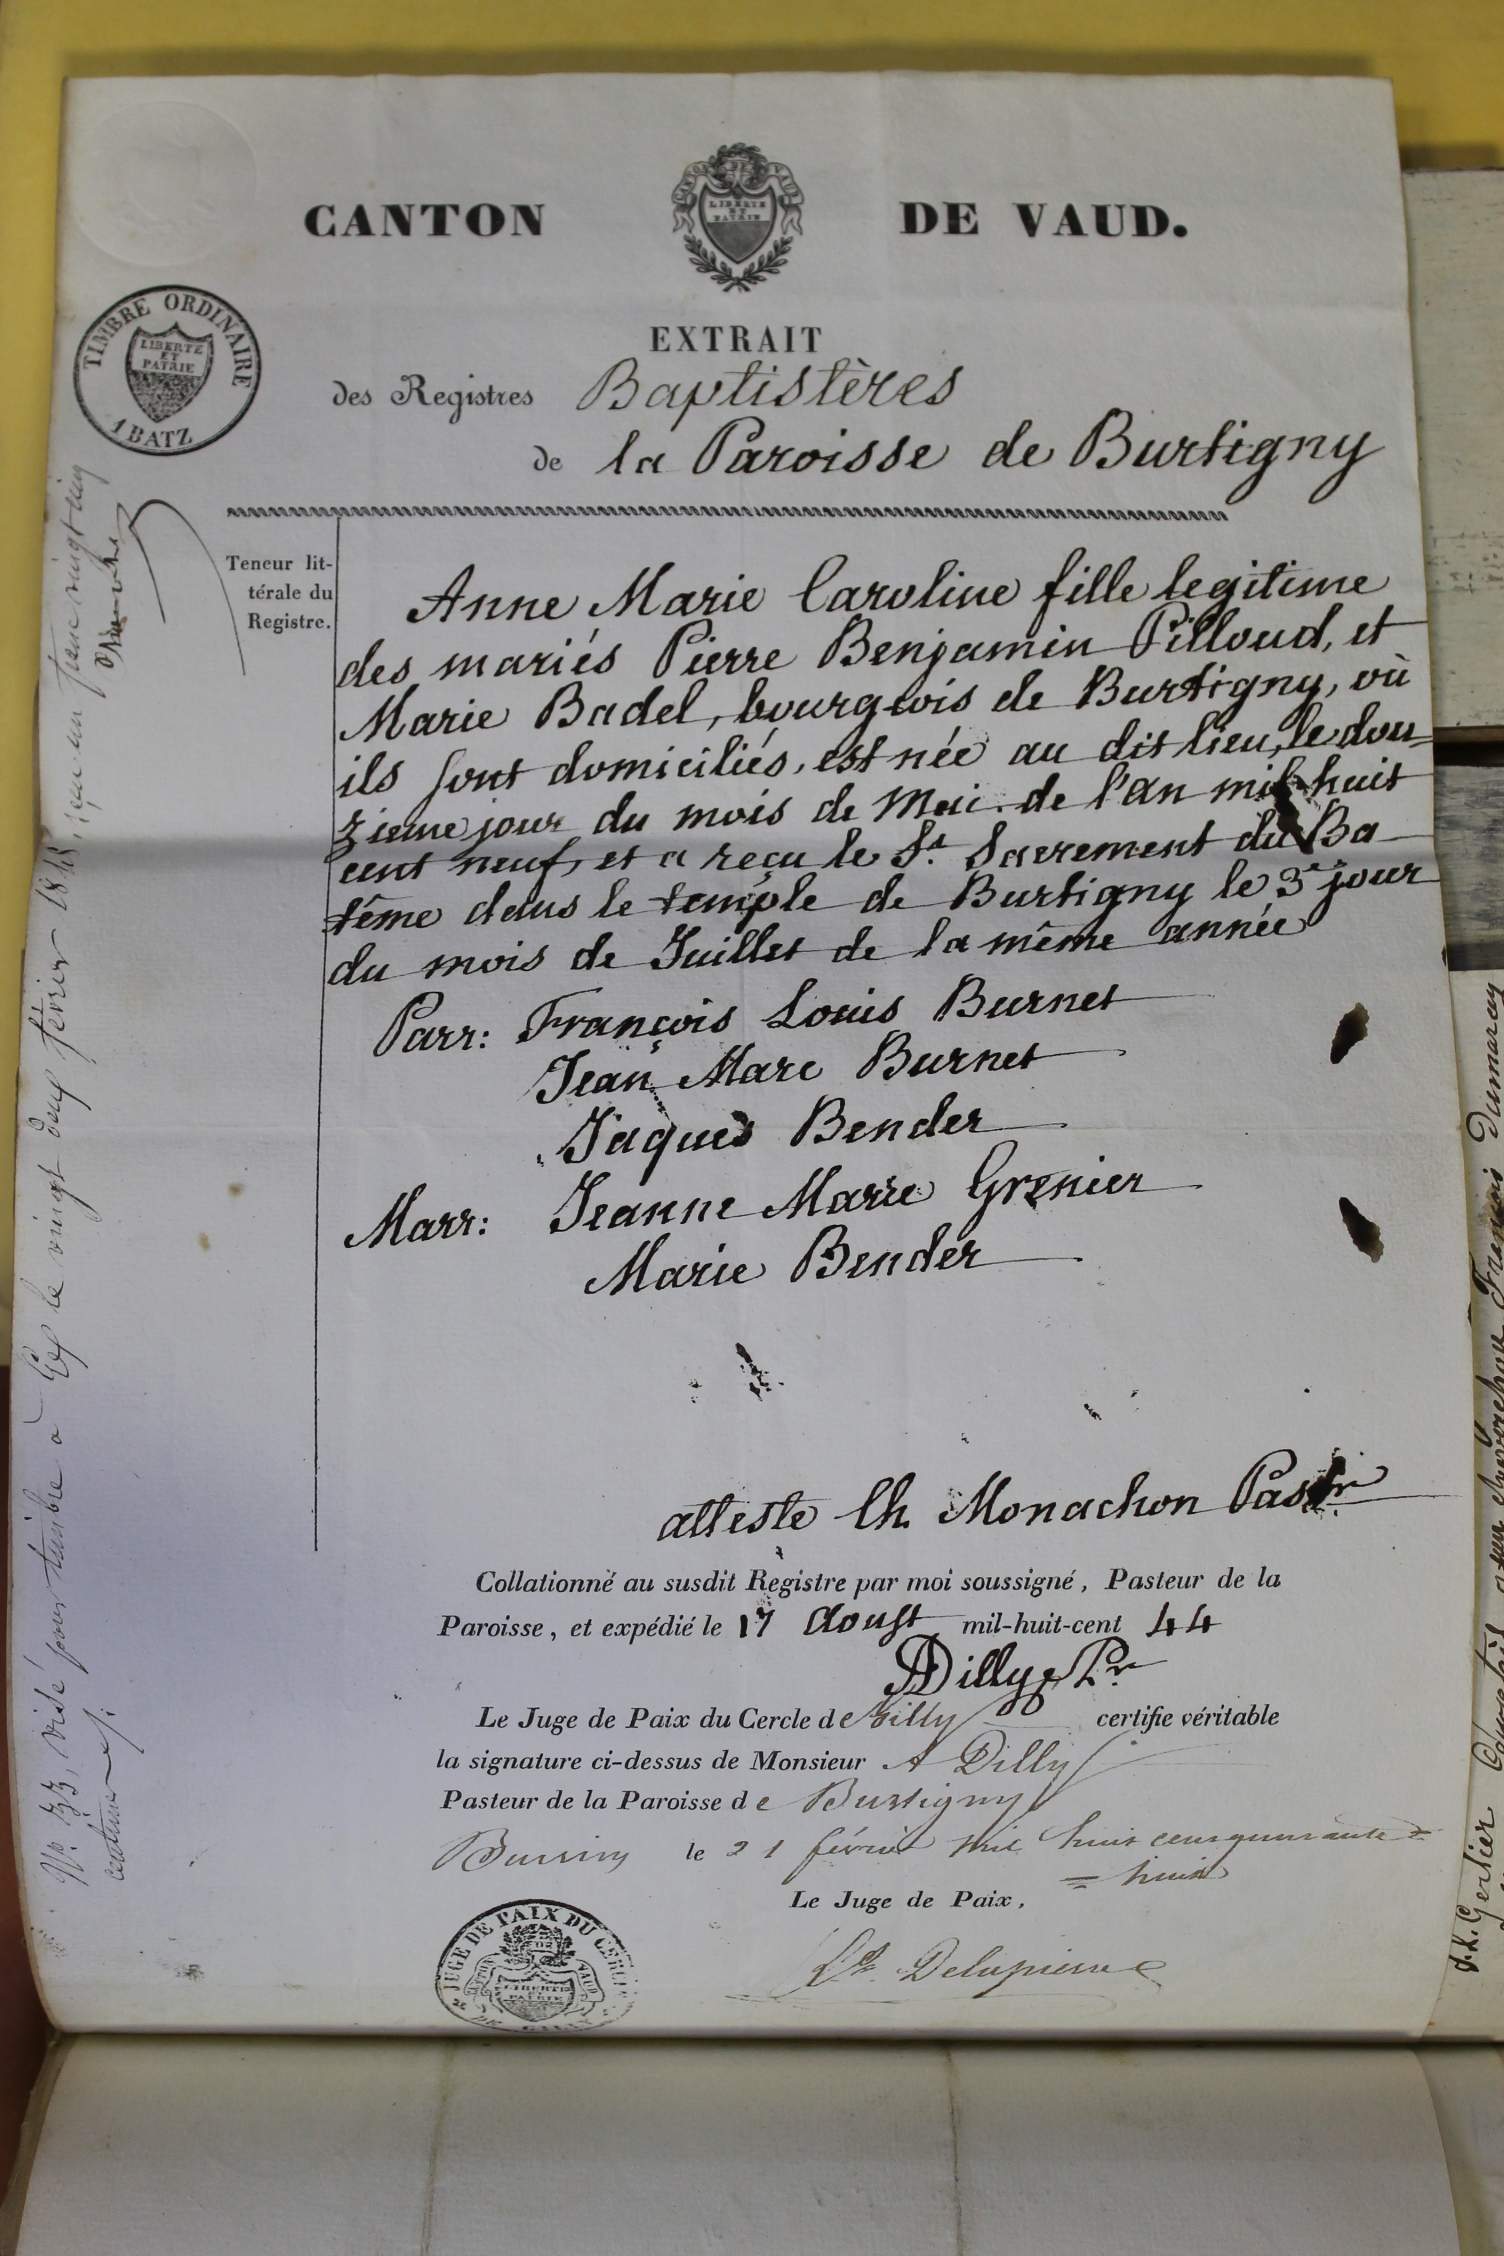 CANTON DE VAUD.
CANTON DE VAUD
LIBERTÉ
ET
PATRIE
TIMBRE ORDINAIRE
LIBERTE
ET
PATRIE
1 BATZ
EXTRAIT
des Registres Baptistères
de la Paroisse de Burtigny
Teneur lit-
térale du
Registre.
Anne Marie Caroline fille legitime
des mariés Pierre Benjamin Pilloud, et
Marie Badel, bourgeois de Burtigny, où
ils sont domiciliés, est née au dit lieu, le dou=
zieme jour du mois de Mai de l'an mil huit
cent neuf, et a reçu le St. Sacrement du Ba-
tême dans le temple de Burtigny le 3e jour
du mois de Juillet de la même année
Parr: François Louis Burnet
Jean Marc Burnet
Jaques Bender
Marr: Jeanne Marie Grenier
Marie Bender
atteste Ch. Monachon Pastr.
Collationné au susdit Registre par moi soussigné, Pasteur de la
Paroisse, et expédié le 17 Aoust mil-huit-cent 44
A Dilly Pr
Le Juge de Paix du Cercle de Gilly certifie véritable
la signature ci-dessus de Monsieur A Dilly
Pasteur de la Paroisse de Burtigny
le 21 février mil huit cent quarante =
= huit
Le Juge de Paix,
Delapierre
JUGE DE PAIX DU CERCLE
CANTON DE VAUD
LIBERTE
ET
PATRIE
DE GILLY
visé pour timbre à Gex le vingt deux février 1848, reçu un franc vingt cinq
centimes
J.L. Gerlier
François Dumarey